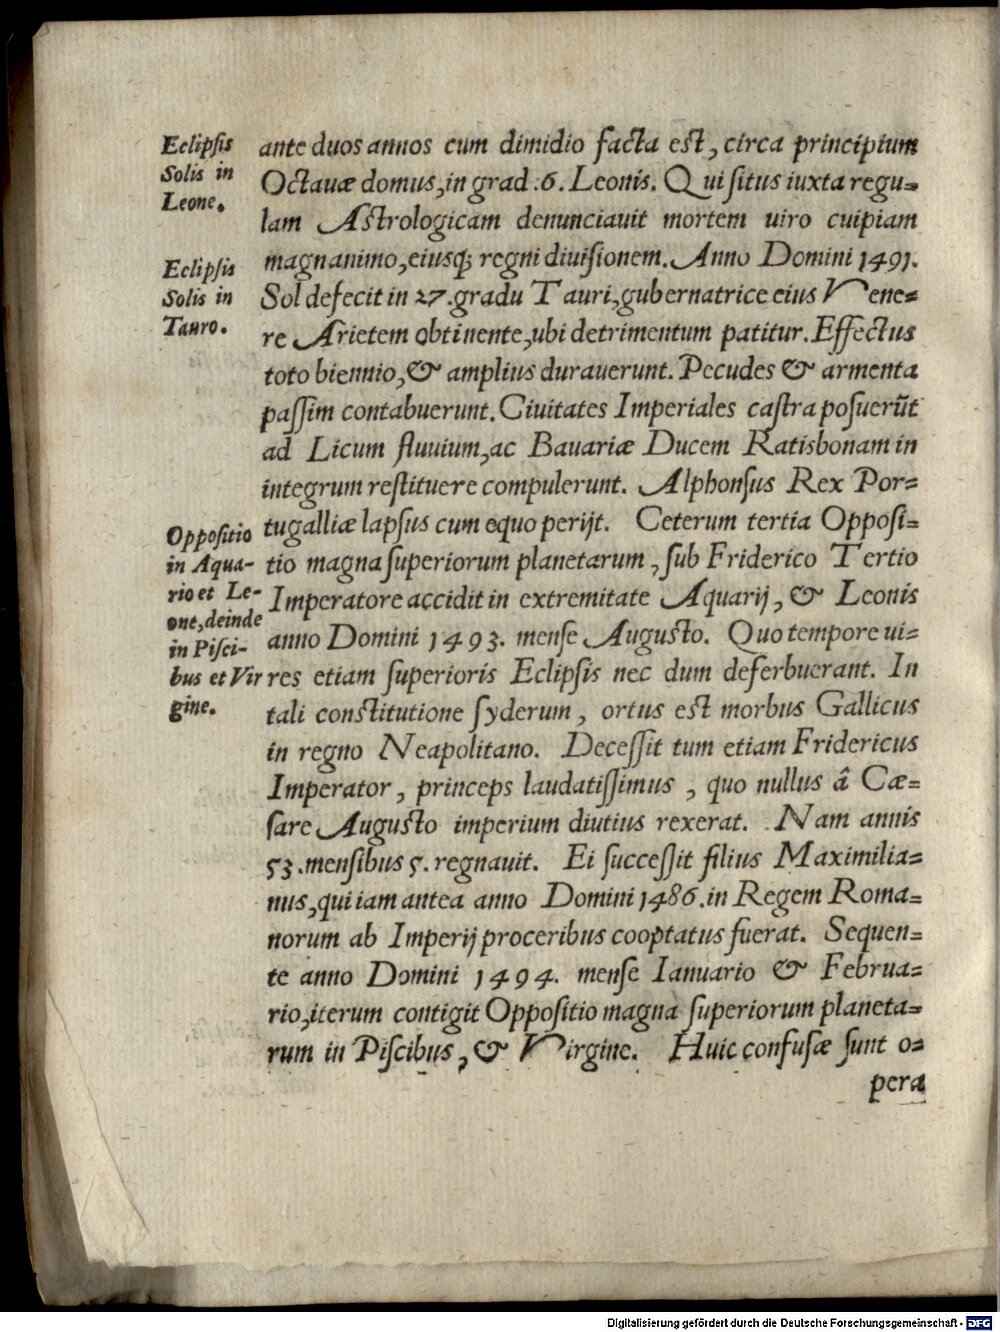 Eclipsis
Solis in
Leone.
ante duos annos cum dimidio facta est, circa principium
Octauæ domus, in grad. 6. Leonis. Qui situs iuxta regu=
lam Astrologicam denunciauit mortem uiro cuipiam
magnanimo, eiusq; regni diuisionem. Anno Domini 1491.
Eclipsis
Solis in
Tauro.
Sol defecit in 27. gradu Tauri, gubernatrice eius Vene=
re Arietem obtinente, ubi detrimentum patitur. Effectus
toto biennio, & amplius durauerunt. Pecudes & armenta
passim contabuerunt. Ciuitates Imperiales castra posuerũt
ad Licum fluuium, ac Bauariæ Ducem Ratisbonam in
integrum restituere compulerunt. Alphonsus Rex Por=
tugalliæ lapsus cum equo perijt. Ceterum tertia Opposi=
Oppositio
in Aqua-
rio et Le-
one, deinde
in Pisci-
bus et Vir
gine.
tio magna superiorum planetarum, sub Friderico Tertio
Imperatore accidit in extremitate Aquarij, & Leonis
anno Domini 1493. mense Augusto. Quo tempore ui=
res etiam superioris Eclipsis nec dum deferbuerant. In
tali constitutione syderum, ortus est morbus Gallicus
in regno Neapolitano. Decessit tum etiam Fridericus
Imperator, princeps laudatissimus, quo nullus â Cæ=
sare Augusto imperium diutius rexerat. Nam annis
53. mensibus 5. regnauit. Ei successit filius Maximilia=
nus, qui iam antea anno Domini 1486. in Regem Roma=
norum ab Imperij proceribus cooptatus fuerat. Sequen=
te anno Domini 1494. mense Ianuario & Februa=
rio, iterum contigit Oppositio magna superiorum planeta=
rum in Piscibus, & Virgine. Huic confusæ sunt o=
pera
Digitalisierung gefördert durch die Deutsche Forschungsgemeinschaft - DFG